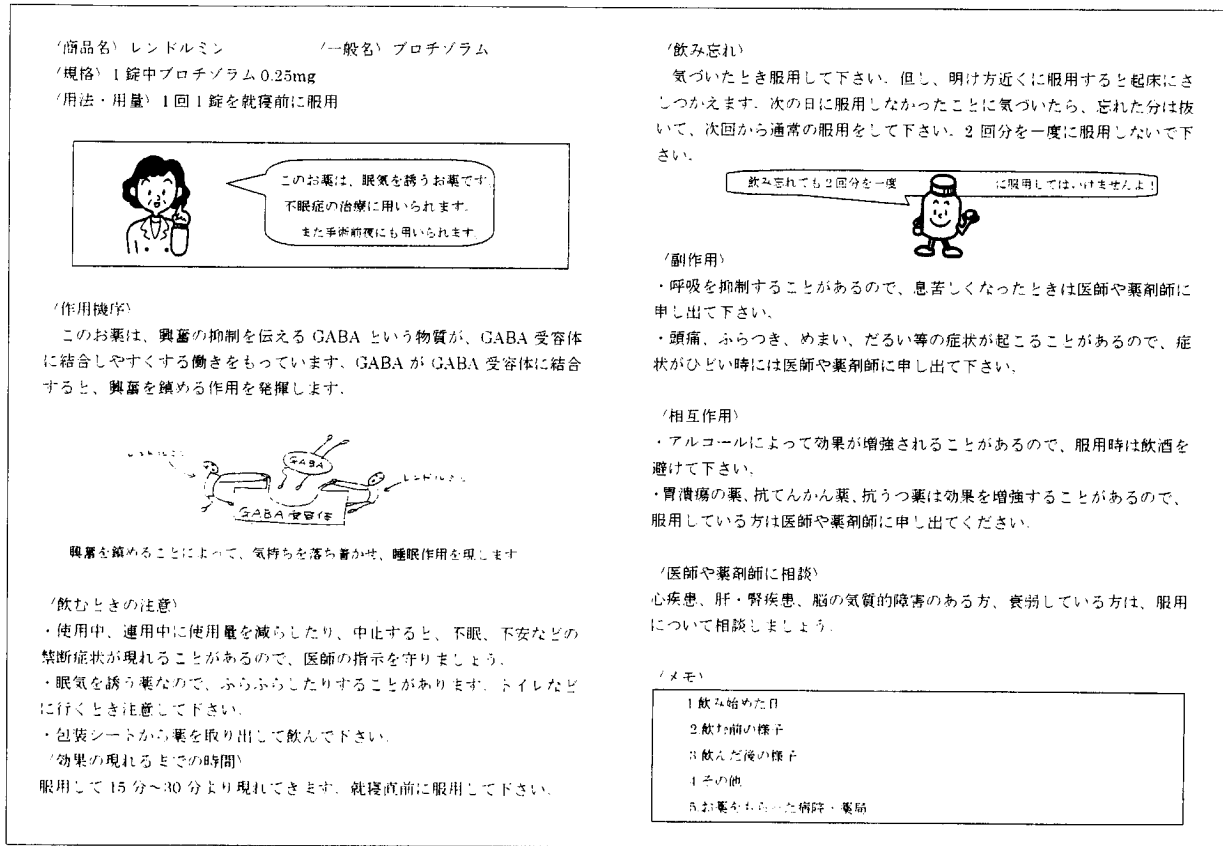 〈商品名〉レンドルミン　〈一般名〉ブロチゾラム
〈規格〉1錠中ブロチゾラム0.25mg
〈用法・用量〉1回1錠を就寝前に服用
このお薬は、眠気を誘うお薬です.
不眠症の治療に用いられます.
また手術前夜にも用いられます.
〈作用機序〉
このお薬は、興奮の抑制を伝える GABA という物質が、GABA 受容体
に結合しやすくする働きをもっています. GABA が GABA 受容体に結合
すると、興奮を鎮める作用を発揮します.
レンドルミン
GABA
レンドルミン
GABA 受容体
興奮を鎮めることによって、気持ちを落ち着かせ、睡眠作用を現します
〈飲むときの注意〉
・使用中、連用中に使用量を減らしたり、中止すると、不眠、不安などの
禁断症状が現れることがあるので、医師の指示を守りましょう.
・眠気を誘う薬なので、ふらふらしたりすることがあります. トイレなど
に行くとき注意して下さい.
・包装シートから薬を取り出して飲んで下さい.
〈効果の現れるまでの時間〉
服用して 15 分〜30 分より現れてきます. 就寝直前に服用して下さい.
〈飲み忘れ〉
気づいたとき服用して下さい. 但し、明け方近くに服用すると起床にさ
しつかえます. 次の日に服用しなかったことに気づいたら、忘れた分は抜
いて、次回から通常の服用をして下さい. 2 回分を一度に服用しないで下
さい.
飲み忘れても2回分を一度に服用してはいけませんよ!
〈副作用〉
・呼吸を抑制することがあるので、息苦しくなったときは医師や薬剤師に
申し出て下さい.
・頭痛、ふらつき、めまい、だるい等の症状が起こることがあるので、症
状がひどい時には医師や薬剤師に申し出て下さい.
〈相互作用〉
・アルコールによって効果が増強されることがあるので、服用時は飲酒を
避けて下さい.
・胃潰瘍の薬、抗てんかん薬、抗うつ薬は効果を増強することがあるので、
服用している方は医師や薬剤師に申し出てください.
〈医師や薬剤師に相談〉
心疾患、肝・腎疾患、脳の気質的障害のある方、衰弱している方は、服用
について相談しましょう.
〈メモ〉
1 飲み始めた日
2 飲む前の様子
3 飲んだ後の様子
4 その他
5 お薬をもらった病院・薬局